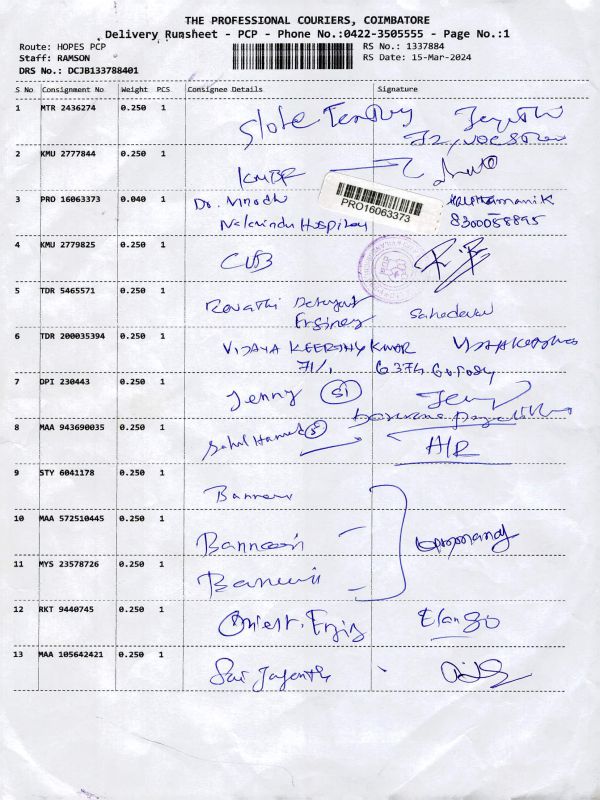 THE PROFESSIONAL COURIERS, COIMBATORE
Delivery Runsheet - PCP - Phone No.:0422-3505555 - Page No.:1
Route: HOPES PCP
RS No.: 1337884
Staff: RAMSON
RS Date: 15-Mar-2024
DRS No.: DCJB133788401
S No Consignment No Weight PCS Consignee Details Signature
1 MTR 2436274 0.250 1
2 KMU 2777844 0.250 1 KMBR
3 PRO 16063373 0.040 1 Dr. Vinodh
PRO16063373
Hospital 8300058895
4 KMU 2779825 0.250 1 CUB
5 TDR 5465571 0.250 1 Revathi
Sahadevan
6 TDR 200035394 0.250 1 VIJAYA KEERTHY KMAR
71/1
7 DPI 230443 0.250 1 Jenny 51 Jenny
8 MAA 943690035 0.250 1 A/R
9 STY 6041178 0.250 1
10 MAA 572510445 0.250 1 Bannari
11 MYS 23578726 0.250 1
12 RKT 9440745 0.250 1 Orient. Elango
13 MAA 105642421 0.250 1 Sai Jayanth